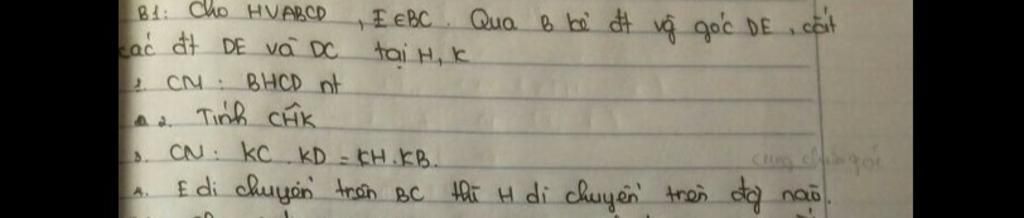 B1: Cho HVABCD, E∈BC. Qua B kẻ đt vg góc DE, cắt
các đt DE và DC tại H, K
1. CM: BHCD nt
2. Tính CĤK
3. CM: KC.KD=KH.KB.
4. E di chuyển trên BC thì H di chuyển trên đg nào.